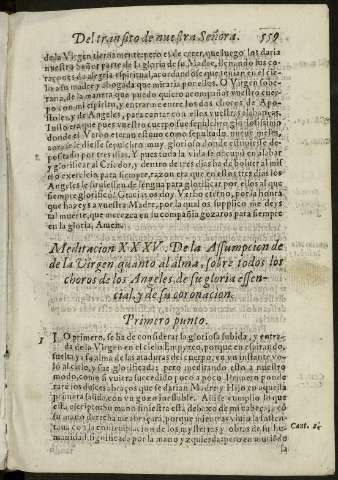 Del transito de nuestra Señora. 559
de la Virgen tiernamente: pero es de creer, que luego les daria
nuestro Señor parte de la gloria de su Madre, llenando sus co-
raçones de alegria espiritual, acordandose que tenian en el cie-
lo a su madre y abogada que miraria por ellos. O Virgen sobe-
rana, de la manera que puedo quiero acompañar vuestro cuer-
po con mi espiritu, y entrarme entre los dos choros, de Apo-
stoles, y de Angeles, para cantar con ellos vuestras alabanças.
Iusto era que pues vuestro cuerpo fue sepulchro gloriosissimo
donde el Verbo eterno estuvo como sepultado nueve meses,
aora se le diesse sepulchro muy glorioso donde estuviesse de-
positado por tres dias. Y pues toda la vida se ocupò en alabar
y glorificar al Criador, y dentro de tres dias ha de bolver al mis-
mo exercicio para siempre, razon era que en estos tres dias los
Angeles le siruiessen de lengua para glorificar por ellos al que
siempre glorificò. Gracias os doy Verbo eterno, por la honra
que hazeys a vuestra Madre, por la qual os supplico me deys
tal muerte, que merezca en su compañia gozaros para siempre
en la gloria, Amen.
Meditacion XXXV. De la Assumpcion de
de la Virgen quanto al alma, sobre todos los
choros de los Angeles, de su gloria essen-
cial, y de su coronacion.
Primero punto.
1 LO primero, se ha de considerar la gloriosa subida, y entra-
da de la Virgen en el cielo Empyreo, porque en espirando,
suelta ya su alma de las ataduras del cuerpo, en un instante vo-
lò al cielo, y fue glorificada: pero meditando esto a nuestro
modo, como si uviera succedido poco a poco. Primero ponde-
rarè los dulces abraços que se darian Madre y Hijo en aquella
primera salida, con un gozo inefable. Alli se cumplio lo que
està escripto: Su mano siniestra està debaxo de mi cabeça, y cõ
su mano derecha me abraçarà, porque mientras vivio la susten-
tava con la contemplacion de los mysterios y obras de su hu- Cant. 2.
manidad, significada por la mano yzquierda, pero en muriẽdo
la